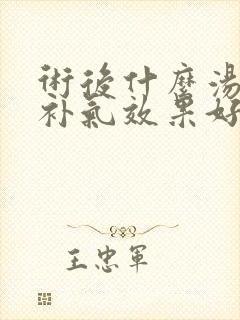 術後什麼湯
补氣效果好
王忠軍